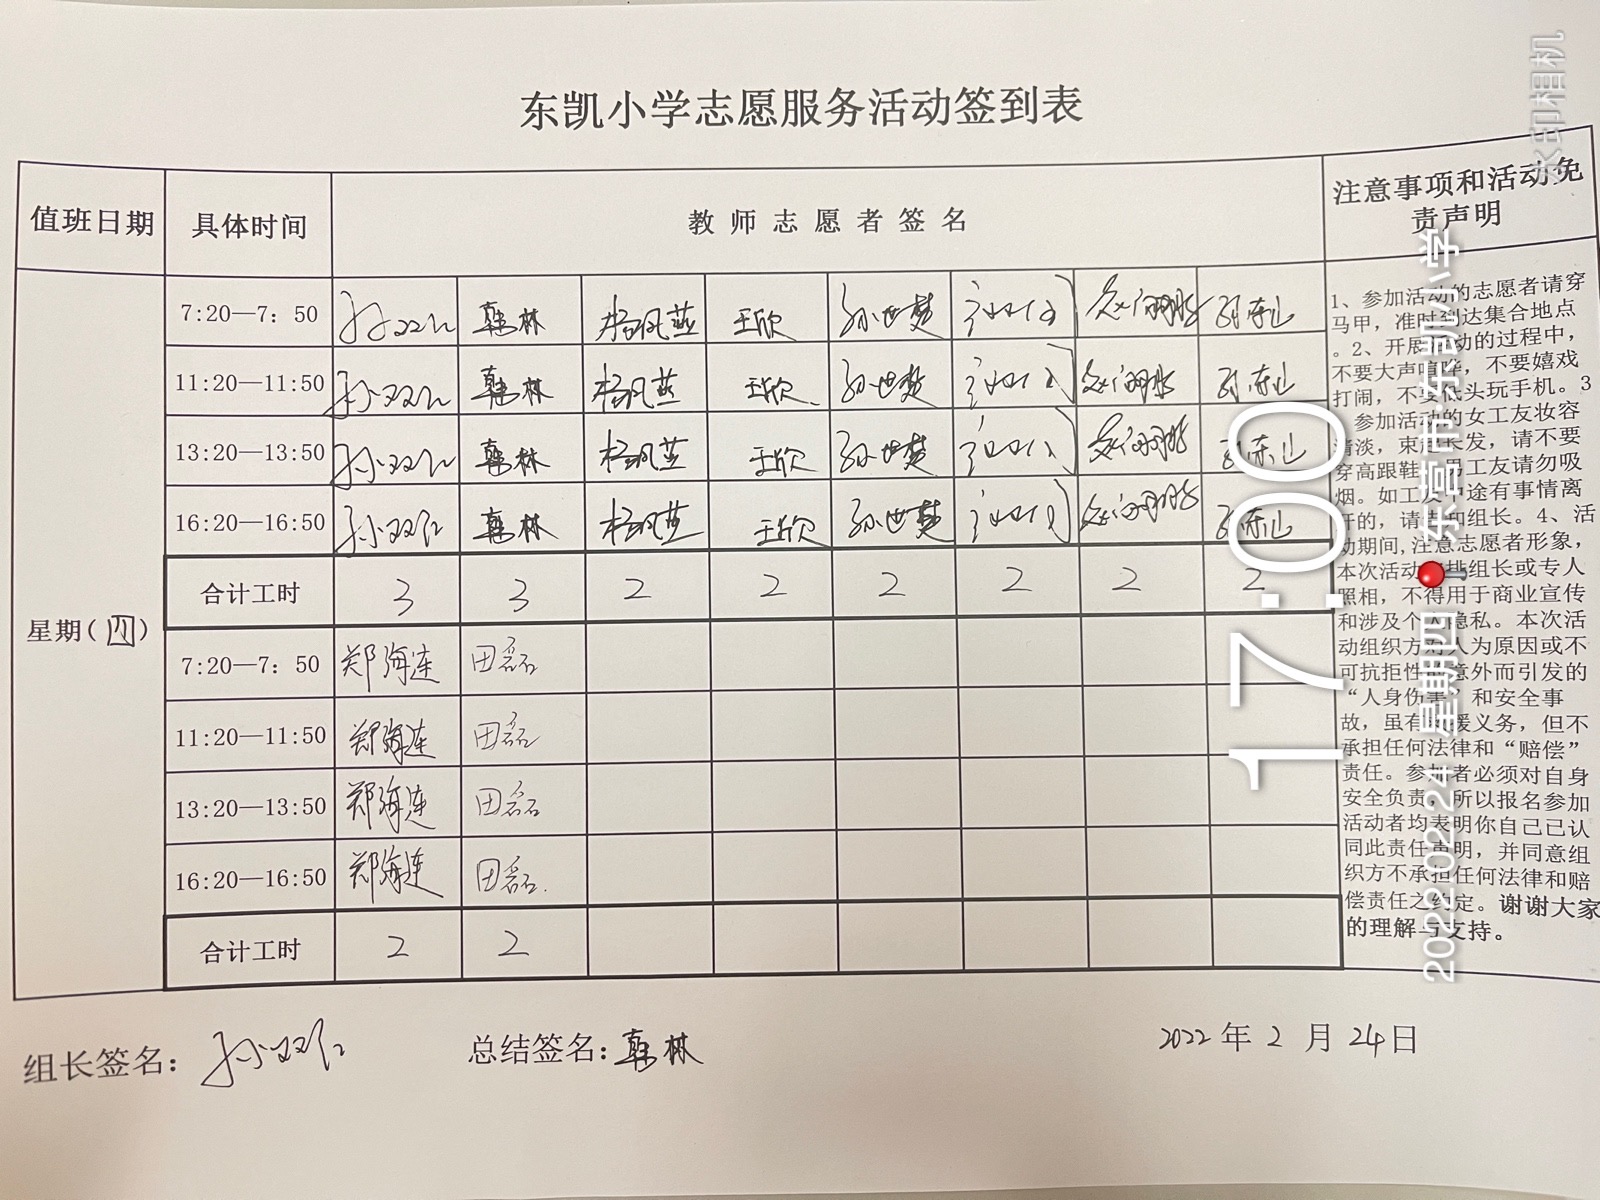 东凯小学志愿服务活动签到表
值班日期 具体时间 教师志愿者签名 注意事项和活动免
责声明
7:20—7：50 韩林 杨凤燕 王欣 孙世梦
11:20—11:50 孙双仁 韩林 杨凤燕 王欣 孙世梦
13:20—13:50 孙双仁 韩林 杨凤燕 王欣 孙世梦
16:20—16:50 孙双仁 韩林 杨凤燕 王欣 孙世梦
合计工时 3 3 2 2 2 2 2 2
星期(四)
7:20—7：50 郑海连 田磊
11:20—11:50 郑海连 田磊
13:20—13:50 郑海连 田磊
16:20—16:50 郑海连 田磊
合计工时 2 2
1、参加活动的志愿者请穿
马甲，准时到达集合地点
。2、开展活动的过程中，
不要大声喧哗，不要嬉戏
打闹，不要低头玩手机。3
参加活动的女工友妆容
清淡，束起长发，请不要
穿高跟鞋，男工友请勿吸
烟。如工友中途有事情离
开的，请告知组长。4、活
动期间,注意志愿者形象，
本次活动安排组长或专人
照相，不得用于商业宣传
和涉及个人隐私。本次活
动组织方对人为原因或不
可抗拒性的意外而引发的
“人身伤害”和安全事
故，虽有救援义务，但不
承担任何法律和“赔偿”
责任。参加者必须对自身
安全负责，所以报名参加
活动者均表明你自己已认
同此责任声明，并同意组
织方不承担任何法律和赔
偿责任之约定。谢谢大家
的理解与支持。
组长签名： 孙双仁 总结签名：韩林 2022 年 2 月 24 日
水印相机
17:00
2022.02.24 星期四 东营市·东凯小学